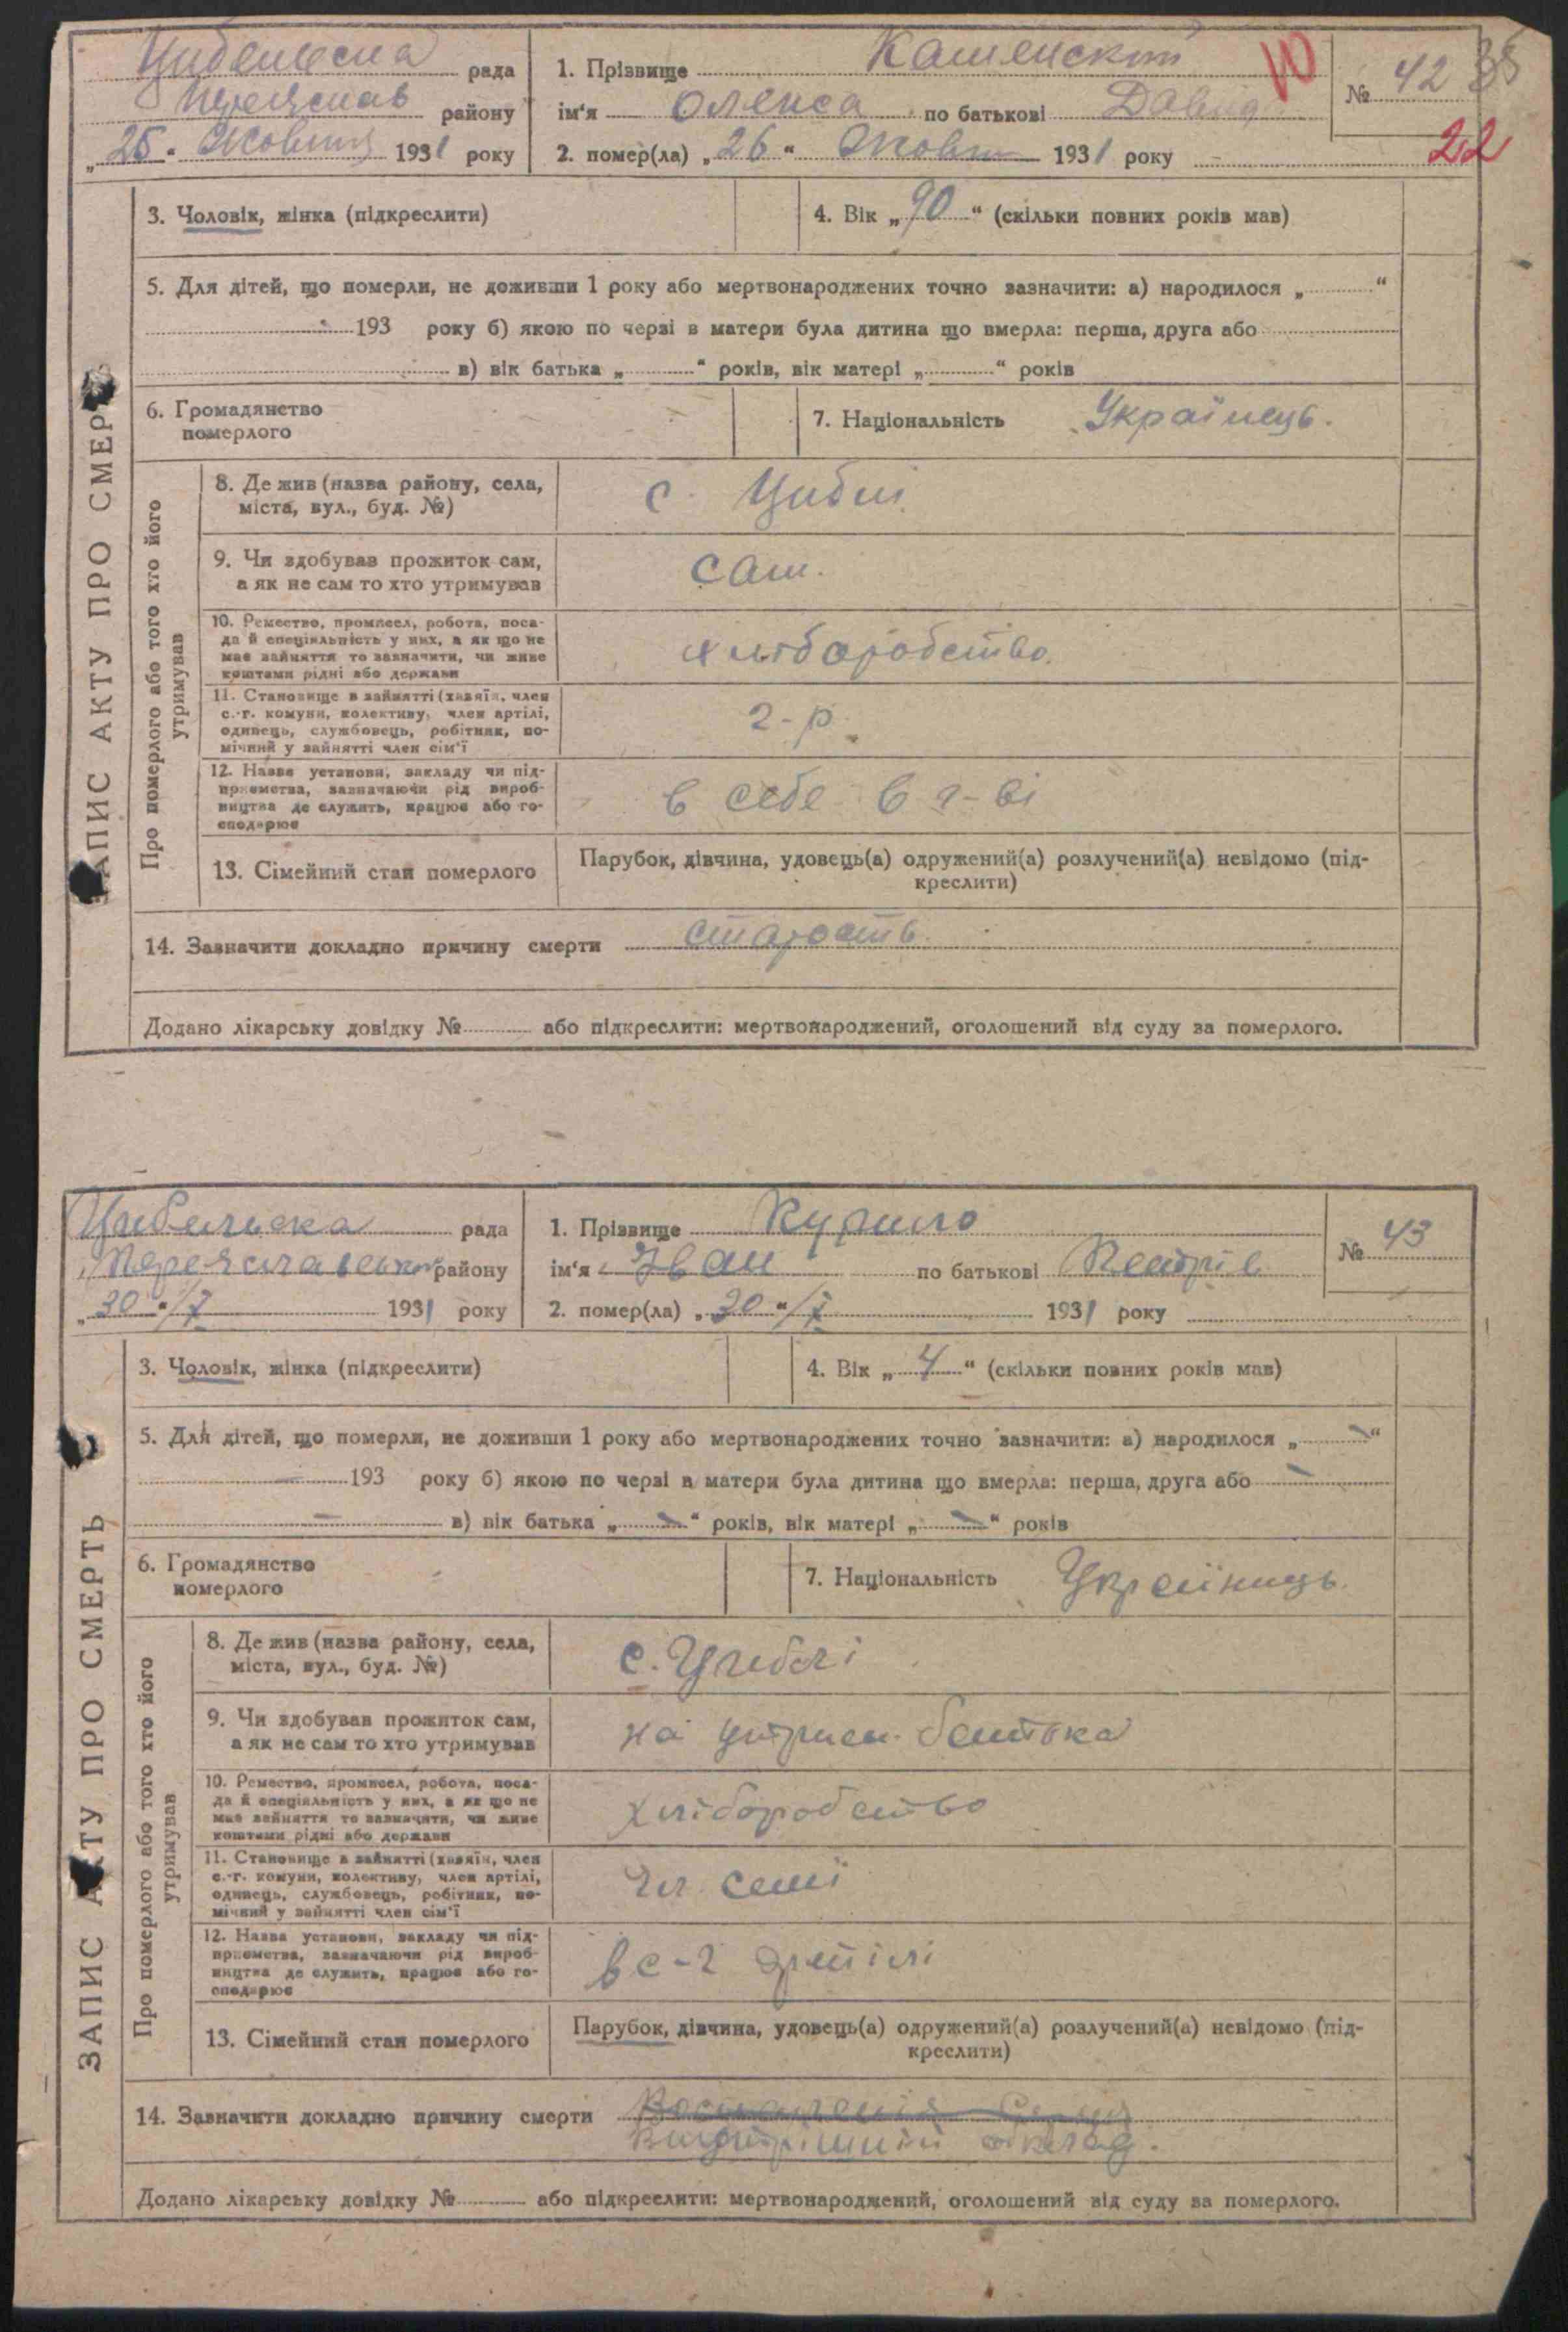 Цибенська рада
Переяслав району
„ 26 “ Жовтня 1931 року
1. Прізвище Каменский
ім'я Олекса по батькові Давид
2. помер(ла) „ 26 “ Жовтн 1931 року
№ 42 35
10
22
ЗАПИС АКТУ ПРО СМЕРТЬ
3. Чоловік, жінка (підкреслити)
4. Вік „ 90 “ (скільки повних років мав)
5. Для дітей, що померли, не доживши 1 року або мертвонароджених точно зазначити: а) народилося „ “
193 року б) якою по черзі в матери була дитина що вмерла: перша, друга або
в) вік батька „ “ років, вік матері „ “ років
6. Громадянство
померлого
7. Національність Українець.
Про померлого або того хто його
утримував
8. Де жив (назва району, села,
міста, вул., буд. №)
с. Циблі
9. Чи здобував прожиток сам,
а як не сам то хто утримував
сам.
10. Ремество, промисел, робота, поса-
да й спеціяльність у них, а як що не
має зайняття то зазначити, чи живе
коштами рідні або держави
хліборобство.
11. Становище в зайнятті (хазяїн, член
с.-г. комуни, колективу, член артілі,
одинець, службовець, робітник, по-
мічний у зайнятті член сім'ї
г-р.
12. Назва установи, закладу чи під-
приємства, зазначаючи рід вироб-
ництва де служить, працює або го-
сподарює
в себе в г-ві
13. Сімейний стан померлого
Парубок, дівчина, удовець(а) одружений(а) розлучений(а) невідомо (під-
креслити)
14. Зазначити докладно причину смерти старость.
Додано лікарську довідку № або підкреслити: мертвонароджений, оголошений від суду за померлого.
Цибельска рада
Переяславськог району
„ 30 “/X 1931 року
1. Прізвище Курило
ім'я Іван по батькові Петрів
2. помер(ла) „ 30 “/X 1931 року
№ 43
ЗАПИС АКТУ ПРО СМЕРТЬ
3. Чоловік, жінка (підкреслити)
4. Вік „ 4 “ (скільки повних років мав)
5. Для дітей, що померли, не доживши 1 року або мертвонароджених точно зазначити: а) народилося „ – “
– 193 року б) якою по черзі в матери була дитина що вмерла: перша, друга або –
– в) вік батька „ – “ років, вік матері „ – “ років
6. Громадянство
померлого
7. Національність Українець.
Про померлого або того хто його
утримував
8. Де жив (назва району, села,
міста, вул., буд. №)
с. Циблі
9. Чи здобував прожиток сам,
а як не сам то хто утримував
на утрим. батька
10. Ремество, промисел, робота, поса-
да й спеціяльність у них, а як що не
має зайняття то зазначити, чи живе
коштами рідні або держави
хліборобство
11. Становище в зайнятті (хазяїн, член
с.-г. комуни, колективу, член артілі,
одинець, службовець, робітник, по-
мічний у зайнятті член сім'ї
Чл. семї
12. Назва установи, закладу чи під-
приємства, зазначаючи рід вироб-
ництва де служить, працює або го-
сподарює
в с-г артілі
13. Сімейний стан померлого
Парубок, дівчина, удовець(а) одружений(а) розлучений(а) невідомо (під-
креслити)
14. Зазначити докладно причину смерти
Внутрішній обклад.
Додано лікарську довідку № або підкреслити: мертвонароджений, оголошений від суду за померлого.